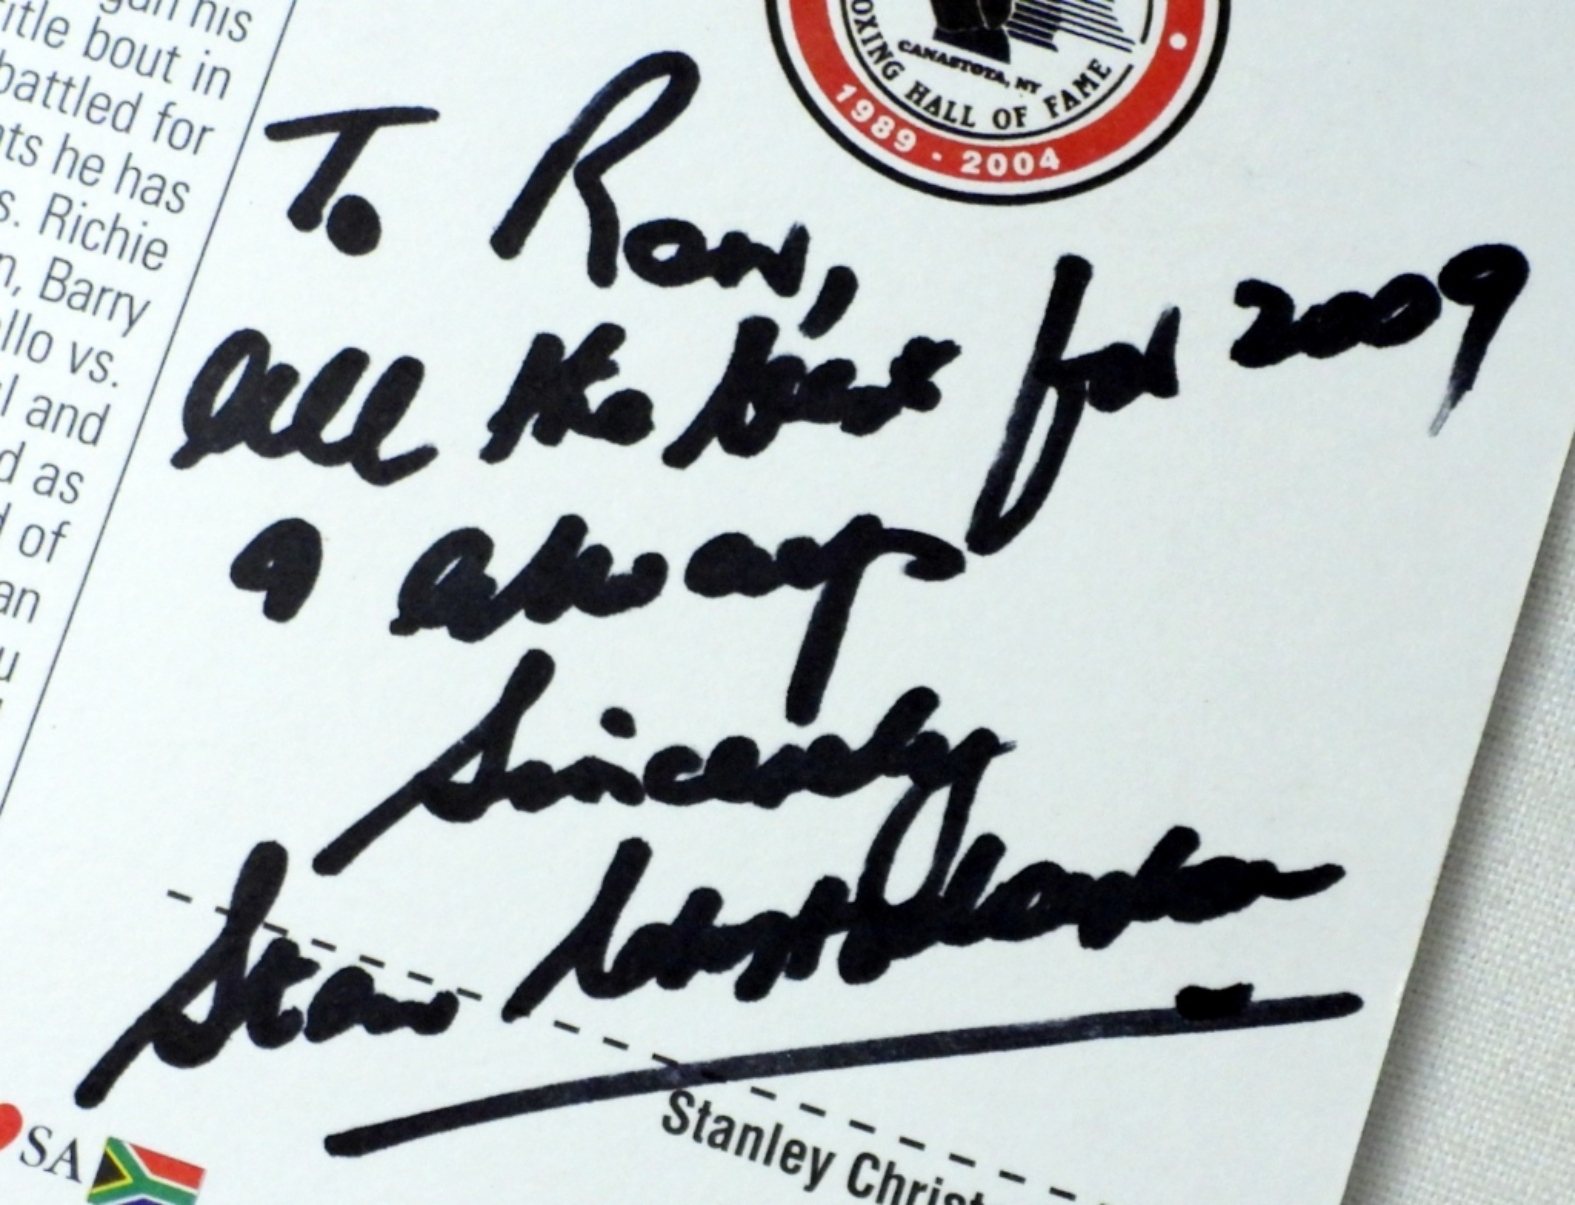 his
title bout in
battled for
ts he has
s. Richie
n, Barry
llo vs.
l and
d as
d of
an
u
CANASTOTA, NY
OXING HALL OF FAME
1989 · 2004
To Ron,
All the best for 2009
& always
Sincerely
Stan
SA
Stanley Christ